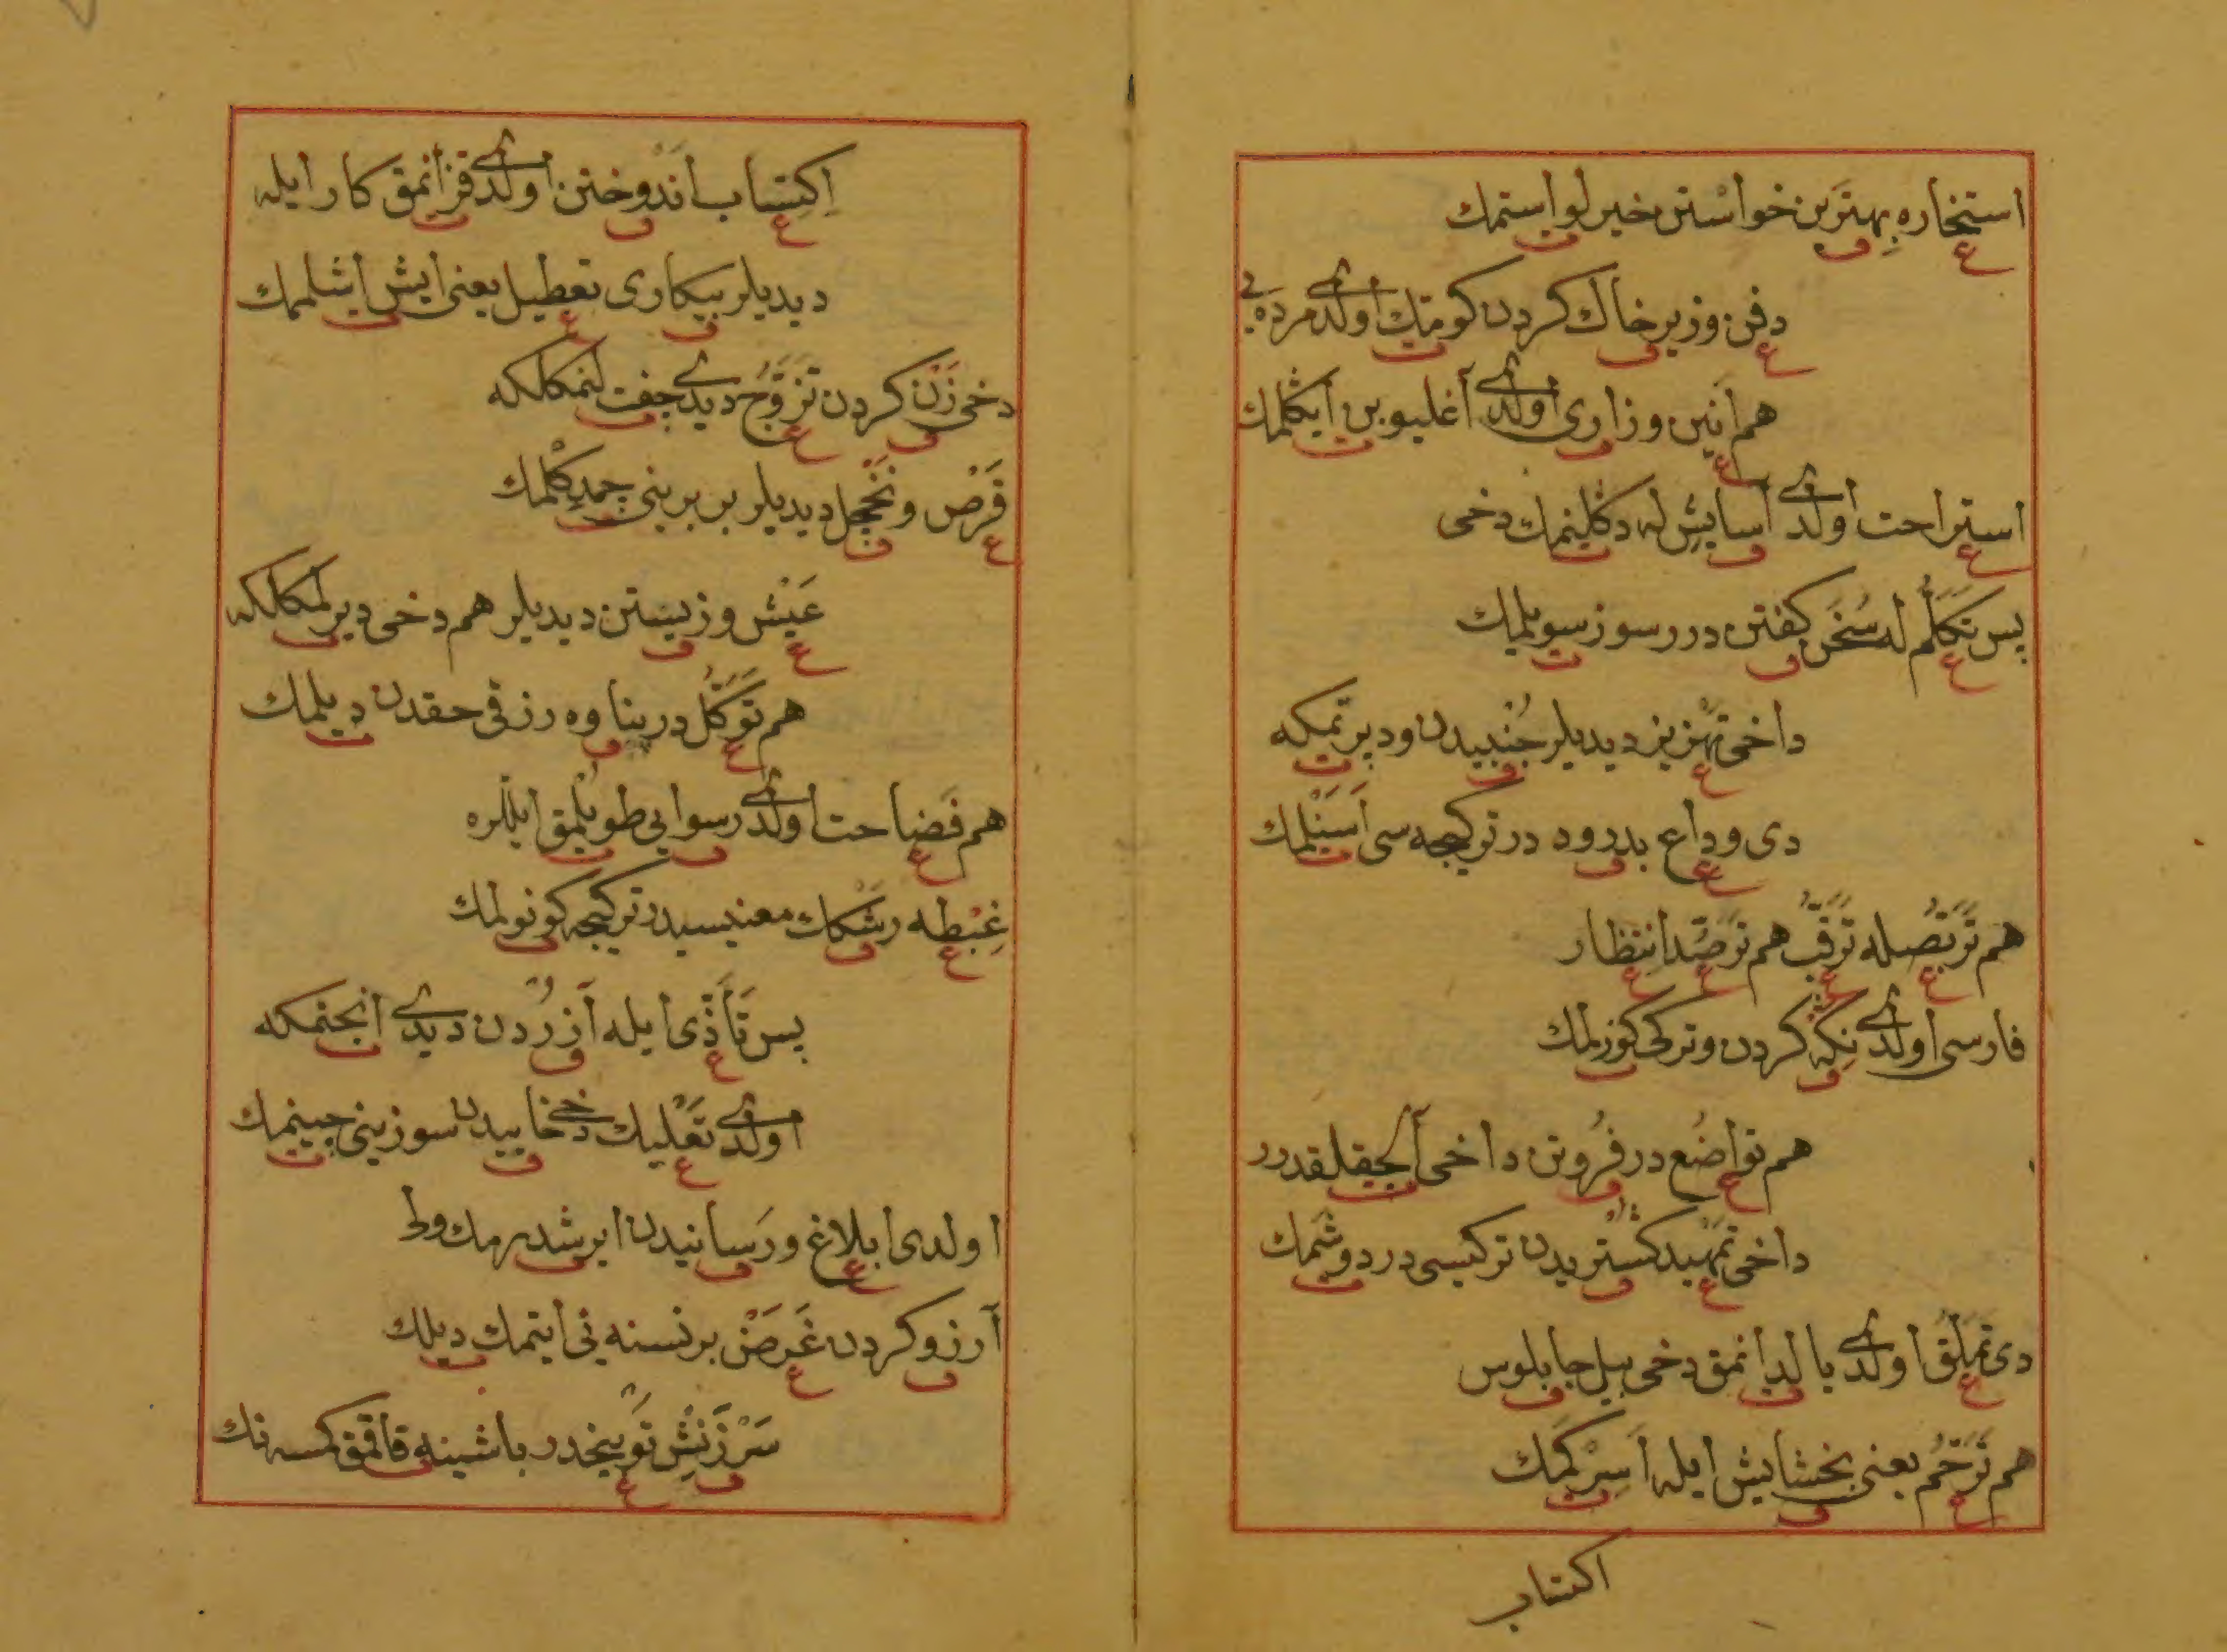 استخاره بهترین خواستن خیر لو استمك
دفن و زیر خاك كردن كومتك اولدی مرده یی
هم انین و زاری اولدی آغلیو بن ایكلمك
استراحت اولدی آسایش له دكلینمك دخی
پس تَكَلُّم له سُخَن كفتن درر سوز سویلمك
داخی تهزیز دیدیلر جُنْبیدن و دپرتمكه
دی وداع بدرود در تركیجه سی اَسَنْلمك
هم تَرَبُّصله تَرَقُّب هم تَرَصُّد انتظار
فارسی اولدی نِكَه كردن و تركی كوزلمك
هم تواضُع در فُروتن داخی آلجقلقدرر
داخی تمهید كُسْتریدن تركیسی در دوشمك
دی تَمَلُّق اولدی یالدانمق دخی بیل جابلوس
هم تَرَحُّم یعنی بخشایش ایله اَسِرْكَمك
اكتساب
اِكتِساب اَنْدوختن اولدی قزانمق كار ایله
دیدیلر بیكاری تعطیل یعنی ایش اشلممك
دخی زَنْ كردن تَزَوُّج دیدی جفت لنمكلكه
قَرْص و نَخْجل دیدیلر بر برینی جمدكلمك
عَیْش و زیستن دیدیلر هم دخی دیرلمكلكه
هم تَوَكُّل در پناوه رزقی حقدن دیلمك
هم فَضاحت اولدی رسوایی طویُلمق ایللره
غِبْطه رَشْكك معنیسیدر تركیجه كونولمك
پس تَأَذّی ایله آزُرْدن دیدی انجنمكه
اولدی تَعْلیك دخی خاییدن سوزینی جینمك
اولدی ابلاغ و رَسانیدن ایرشدرمك ولی
آرزو كردن غَرَضْ بر نسنه نی ایتمك دیلك
سَرْزَنِش تَوْبیخدر باشینه قاقمق كمسه نك